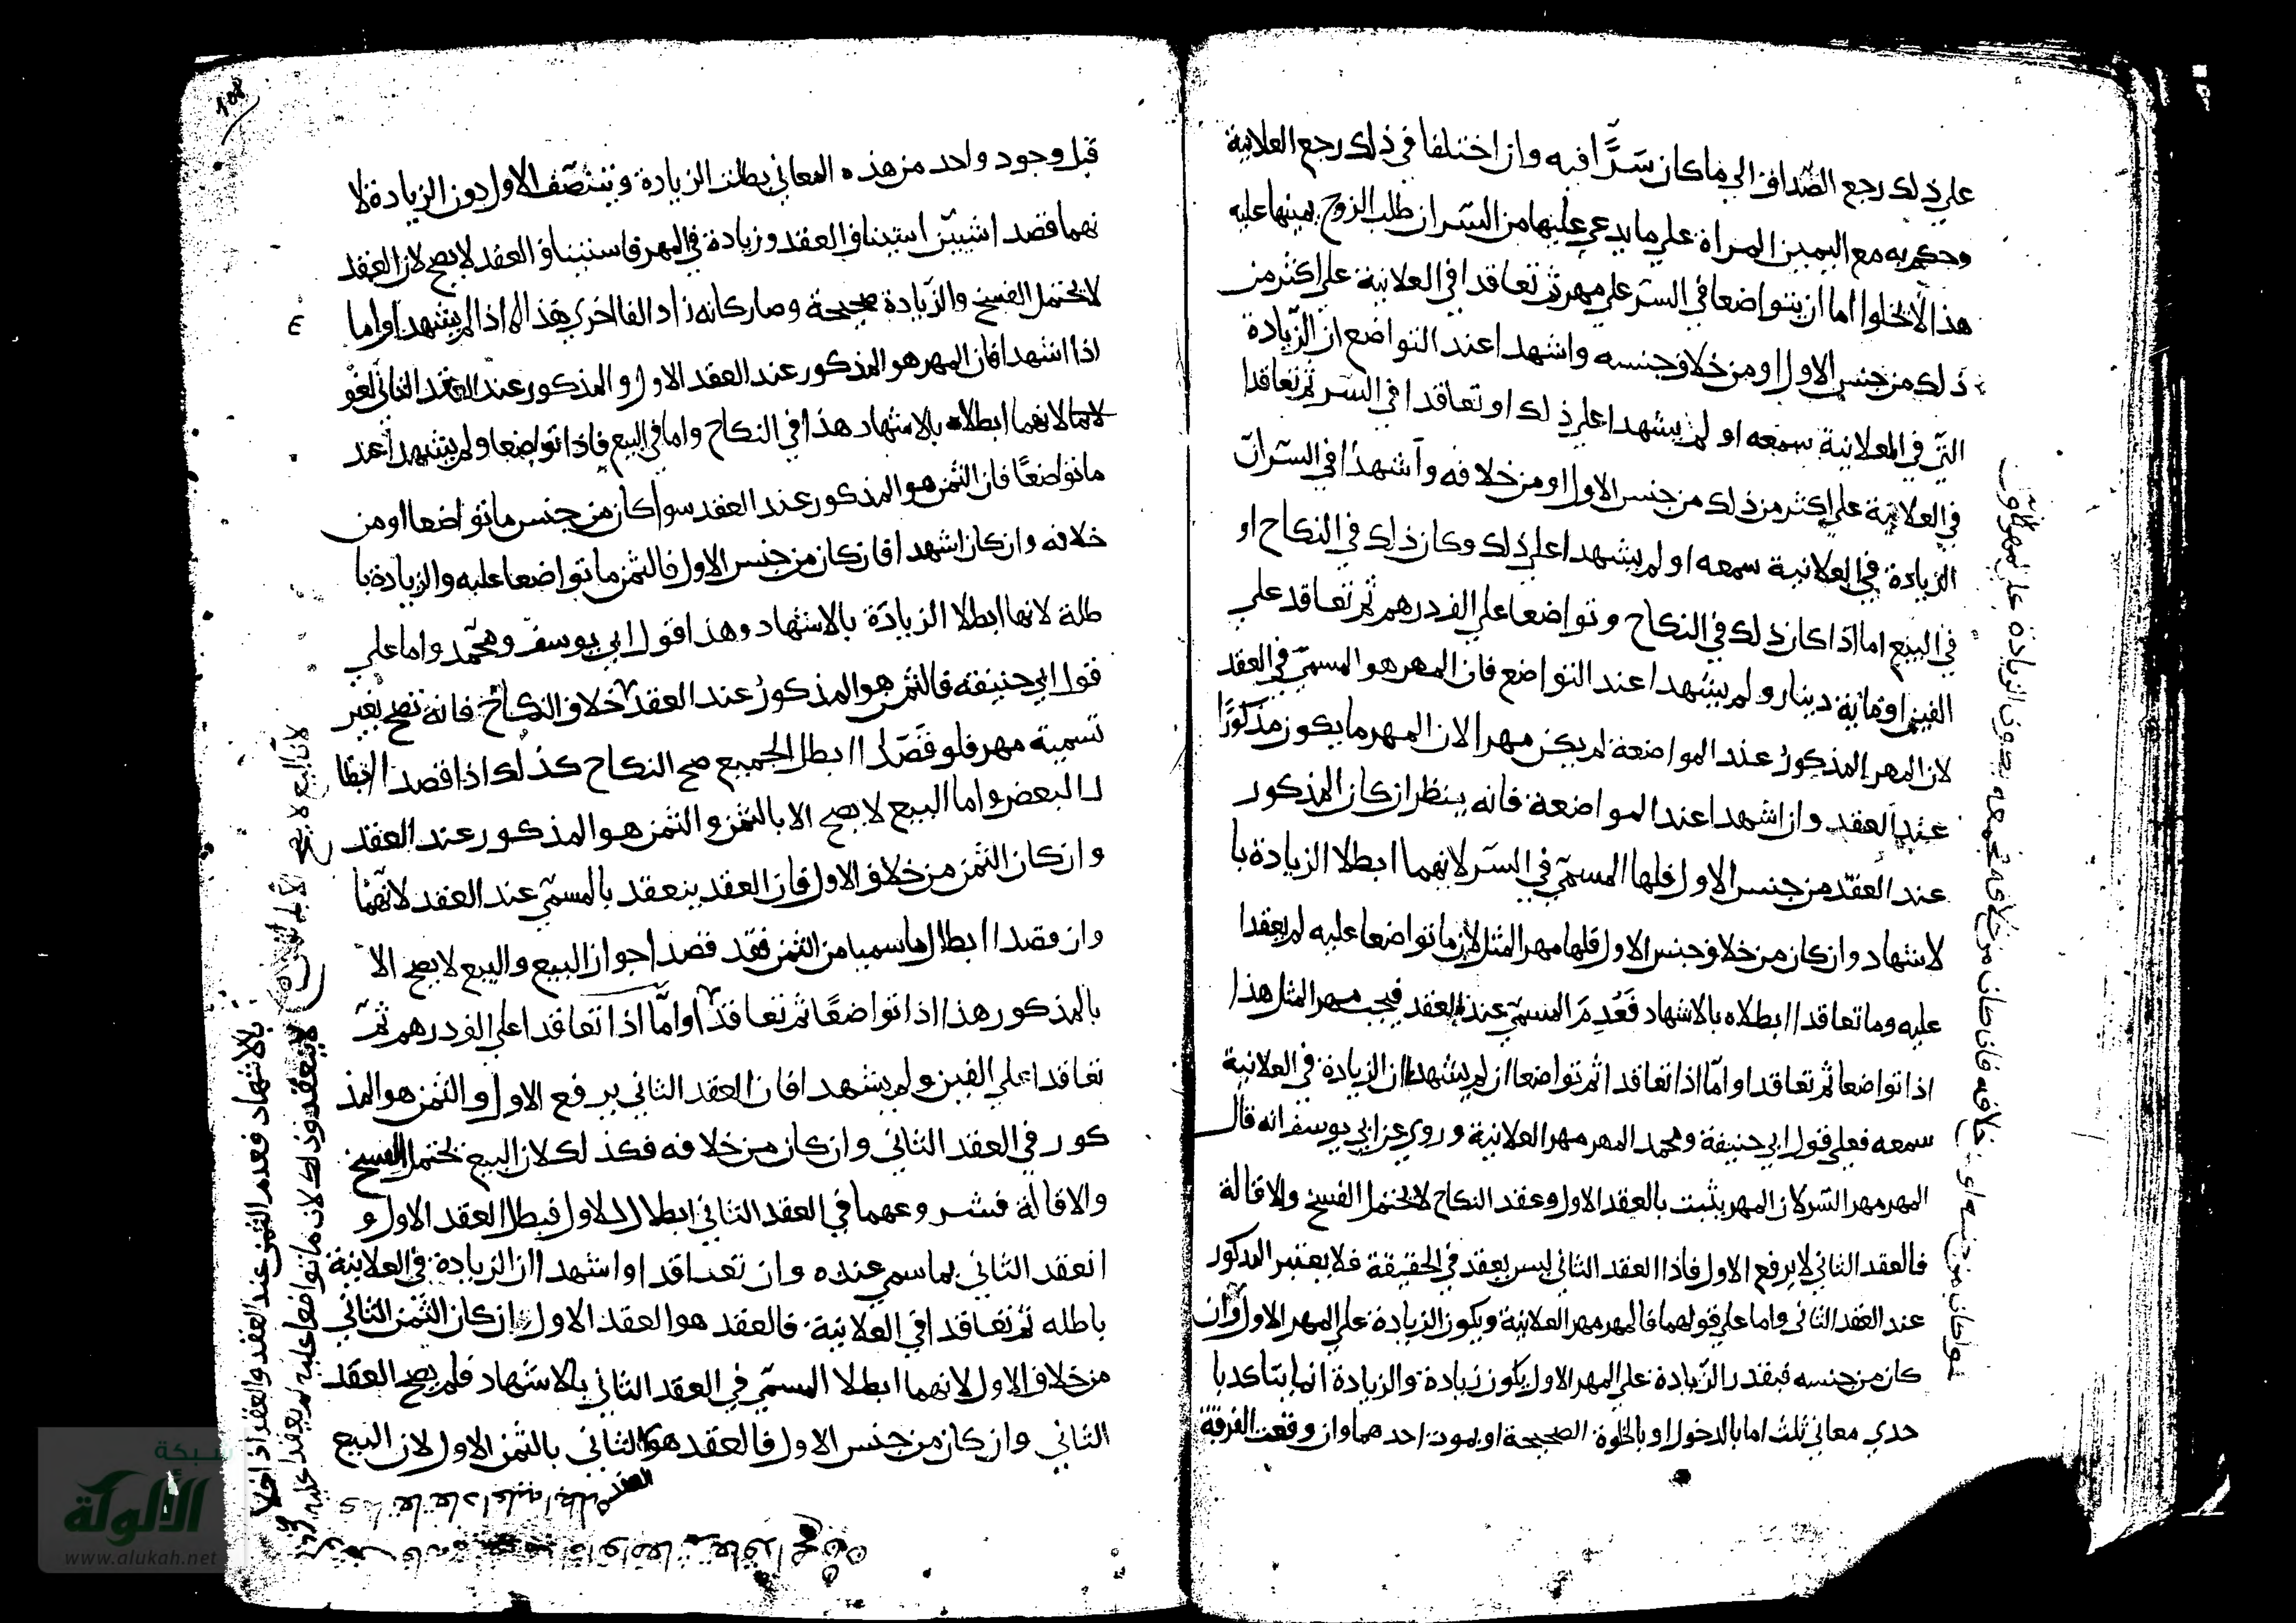 علي ذلك رجع الصداق الي ما كان سرا فيه وان اختلفا في ذلك رجع العلانية
وحكم به مع اليمين المراة علي ما يدعي عليها من السر ان طلب الزوج يمينها عليه
هذا لا يخلوا اما ان يتواضعا في السر علي مهر ثم تعاقدا في العلانية علي اكثر من
ذلك من جنس الاول او من خلاف جنسه واشهدا عند التواضع ان الزيادة
التي في العلانية سمعه او لم يشهدا علي ذلك او تعاقدا في السر ثم تعاقدا
في العلانية علي اكثر من ذلك من جنس الاول او من خلافه وأشهدا في السر ان
الزيادة في العلانية سمعه او لم يشهدا علي ذلك وكان ذلك في النكاح او
في البيع اما اذا كان ذلك في النكاح وتواضعا علي الف درهم ثم تعاقد علي
الفين او مائة دينار ولم يشهدا عند التواضع فان المهر هو المسمي في العقد
لان المهر المذكور عند المواضعة لم يكن مهرا لان المهر ما يكون مذكورًا
عند العقد وان اشهدا عند المواضعة فانه ينظر ان كان المذكور
عند العقد من جنس الاول فلها المسمي في السر لانهما ابطلا الزيادة با
لاشهاد وان كان من خلاف جنس الاول فلها مهر المثل لان ما تواضعا عليه لم يعقدا
عليه وما تعاقدا ابطلاه بالاشهاد فَعُدِمَ المسمي عند العقد فيجب مهر المثل هذا
اذا تواضعا ثم تعاقدا واما اذا تعاقدا ثم تواضعا ان لم يشهدا ان الزيادة في العلانية
سمعه فعلي قول ابي حنيفة ومحمد المهر مهر العلانية وروي عن ابي يوسف انه قال
المهر مهر السر لان المهر يثبت بالعقد الاول وعقد النكاح لا يحتمل الفسخ والاقالة
فالعقد الثاني لا يرفع الاول فاذا العقد الثاني ليس بعقد في الحقيقة فلا يعتبر المذكور
عند العقد الثاني واما علي قولهما فالمهر مهر العلانية ويكون الزيادة علي المهر الاول وان
كان من جنسه فبقدر الزيادة علي المهر الاول يكون زيادة والزيادة انما يتاكد با
حدي معاني ثلث اما بالدخول او بالخلوة الصحيحة او بموت احدهما وان وقعت الفرقة
قبل وجود واحد من هذه المعاني بطلت الزيادة ويتنصف الاول دون الزيادة لا
نهما قصد اشيين استيناف العقد وزيادة في المهر فاستيناف العقد لا يصح لان العقد
لا يحتمل الفسخ والزيادة صحيحة وصار كانه زاد الفا اخري هذا اذا لم يشهدا واما
اذا اشهدا فان المهر هو المذكور عند العقد الاول والمذكور عند العقد الثاني لغو
لانهما ابطلاه بالاشهاد هذا في النكاح واما في البيع فاذا تواضعا ولم يشهدا عند
ما تواضعًا فان الثمن هو المذكور عند العقد سوا كان من جنس ما تواضعا او من
خلافه وان كان اشهدا فان كان من جنس الاول فالثمن ما تواضعا عليه والزيادة با
طلة لانها ابطلا الزيادة بالاشهاد وهذا قول ابي يوسف ومحمد واما علي
قول ابي حنيفه فالثمن هو المذكور عند العقد خلاف النكاح فانه تصح بغير
تسمية مهر فلو قصدا ابطل الجميع صح النكاح كذلك اذا قصدا ابطا
ل البعض واما البيع لا يصح الا بالثمن والثمن هو المذكور عند العقد
وان كان الثمن من خلاف الاول فان العقد ينعقد بالمسمي عند العقد لانهما
وان قصدا ابطال ما سميا من الثمن فقد قصدا جواز البيع والبيع لا يصح الا
بالمذكور هذا اذا تواضعًا ثم تعاقدا واما اذا تعاقدا علي الف درهم ثم
تعاقدا علي الفين ولم يشهدا فان العقد الثاني يرفع الاول والثمن هو المذ
كور في العقد الثاني وان كان من خلافه فكذلك لان البيع يحتمل الفسخ
والاقالة فشروعهما في العقد الثاني ابطال للاول فبطل العقد الاول و
انعقد الثاني بما سمي عنده وان تعاقدا واشهدا ان الزيادة في العلانية
باطله ثم تعاقدا في العلانية فالعقد هو العقد الاول ان كان الثمن الثاني
من خلاف الاول لانهما ابطلا المسمي في العقد الثاني بالاشهاد فلم يصح العقد
الثاني وان كان من جنس الاول فالعقد هو الثاني بالثمن الاول لان البيع
بالاشهاد فعدم الثمن عند العقد والعقد اذا خلا
لا ينعقد وذلك لان ما تواضعا عليه لم يعقدا عليه
شبكة
الألوكة
www.alukah.net